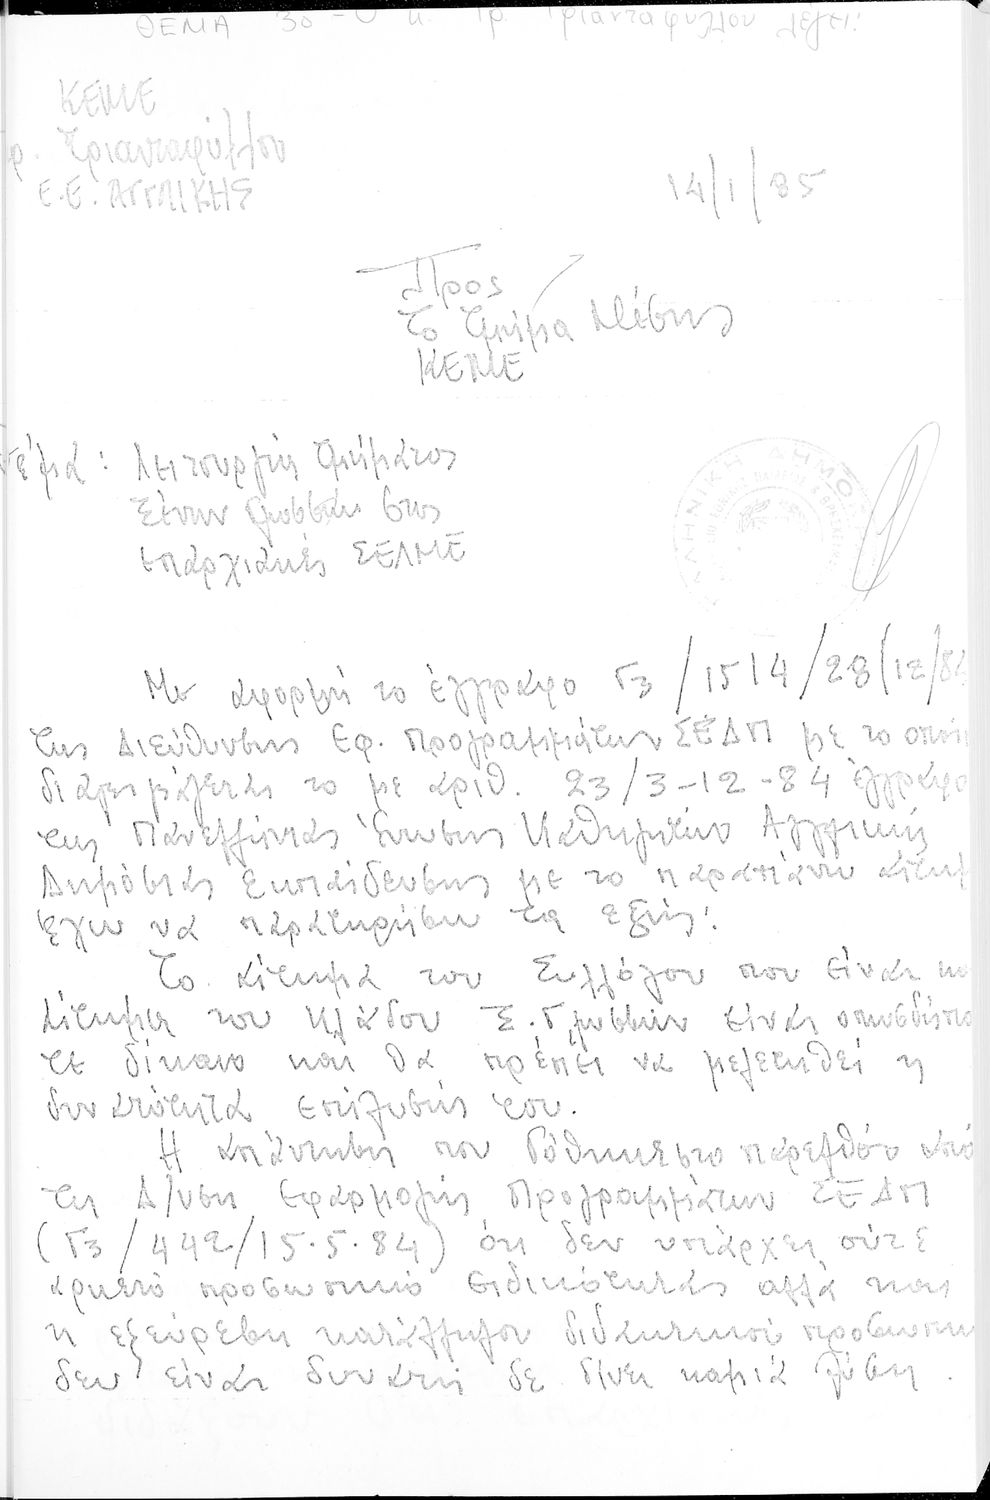 ΘΕΜΑ 3ο - Ο κ. Γρ. Τριανταφύλλου λέγει:
ΚΕΜΕ
ρ. Τριανταφύλλου
Ε.Ε. ΑΓΓΛΙΚΗΣ
14/1/85
Προς
Το Τμήμα Μέσης
ΚΕΜΕ
έμα: Λειτουργία τμήματος
Ξένων Γλωσσών στις
επαρχιακές ΣΕΛΜΕ
ΛΛΗΝΙΚΗ ΔΗΜΟ
Με αφορμή το έγγραφο Γ3/1514/28/12/84
της Διεύθυνσης Εφ. Προγραμμάτων ΣΕΔΠ με το οποίο
διαβιβάζεται το με αριθ. 23/3-12-84 έγγραφο
της Πανελλήνιας Ένωσης Καθηγητών Αγγλικής
Δημόσιας Εκπαίδευσης με το παραπάνω αίτημ
έχω να παρατηρήσω τα εξής:
Το αίτημα του Συλλόγου που είναι κα
αίτημα του Κλάδου Ξ. Γλωσσών είναι οπωσδήπο
τε δίκαιο και θα πρέπει να μελετηθεί η
δυνατότητα επίλυσής του.
Η απάντηση που δόθηκε στο παρελθόν από
τη Δ/νση Εφαρμογής Προγραμμάτων ΣΕΔΠ
(Γ3/442/15.5.84) ότι δεν υπάρχει ούτε
αρκετό προσωπικό ειδικότητας αλλά και
η εξεύρεση κατάλληλου διδακτικού προσωπικ
δεν είναι δυνατή δε δίνει καμιά λύση.